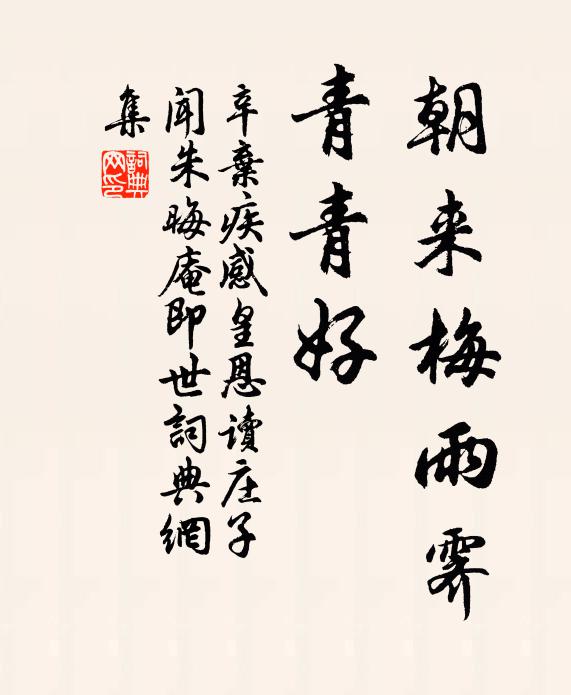 朝来梅雨霁
青青好
辛棄疾感皇恩读庄子
闻朱晦庵即世詞典網
集
詞典网印